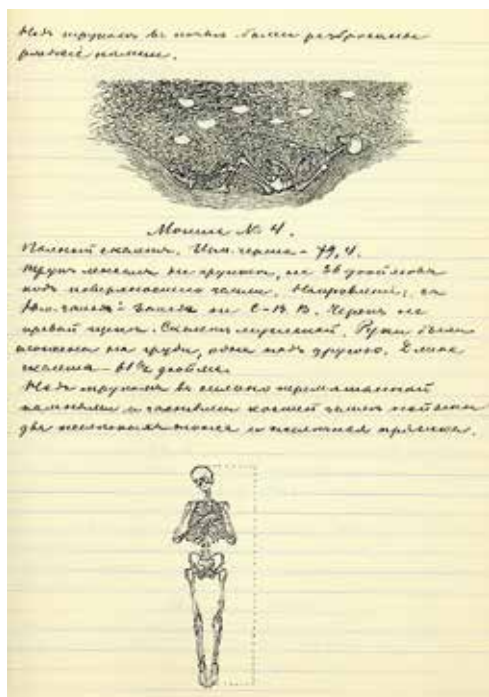 Надъ трупомъ въ почвѣ были разбросаны
рѣдкіе камни.
Могила № 4.
Полный скелетъ. Указ. черепа – 79,4.
Трупъ лежалъ на грунтѣ, на 36 дюймовъ
подъ поверхностью земли. Направленіе: съ
Юго-Запад - Запада на С-В. В. Черепъ на
правой щекѣ. Скелетъ мужской. Руки были
сложены на груди, одна надъ другою. Длина
скелета – 61½ дюйма.
Надъ трупомъ въ сильно перемѣшанной
камнями и костей землѣ найдены
два ножа и пряжка.